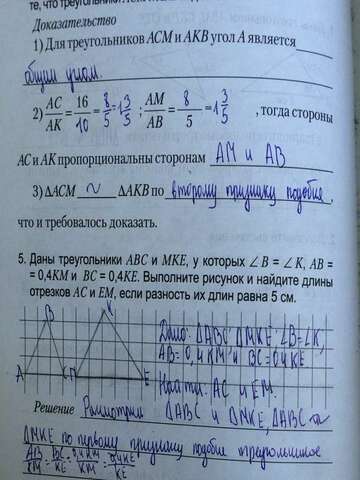 те, что треугольники
Доказательство
1) Для треугольников ACM и AKB угол A является
общим углом.
2) AC/AK = 16/10 = 8/5 = 1 3/5; AM/AB = 8/5 = 1 3/5, тогда стороны
AC и AK пропорциональны сторонам AM и AB
3) ΔACM ~ ΔAKB по второму признаку подобия,
что и требовалось доказать.
5. Даны треугольники ABC и MKE, у которых ∠B = ∠K, AB =
= 0,4KM и BC = 0,4KE. Выполните рисунок и найдите длины
отрезков AC и EM, если разность их длин равна 5 см.
B K Дано: ΔABC ΔMKE ∠B=∠K,
AB=0,4KM и BC=0,4KE
A C M E Найти: AC и EM.
Решение Рассмотрим ΔABC и ΔMKE, ΔABC ~
ΔMKE по первому признаку подобия треугольников
AB/KM = BC/KE = 0,4KM/KM = 0,4KE/KE